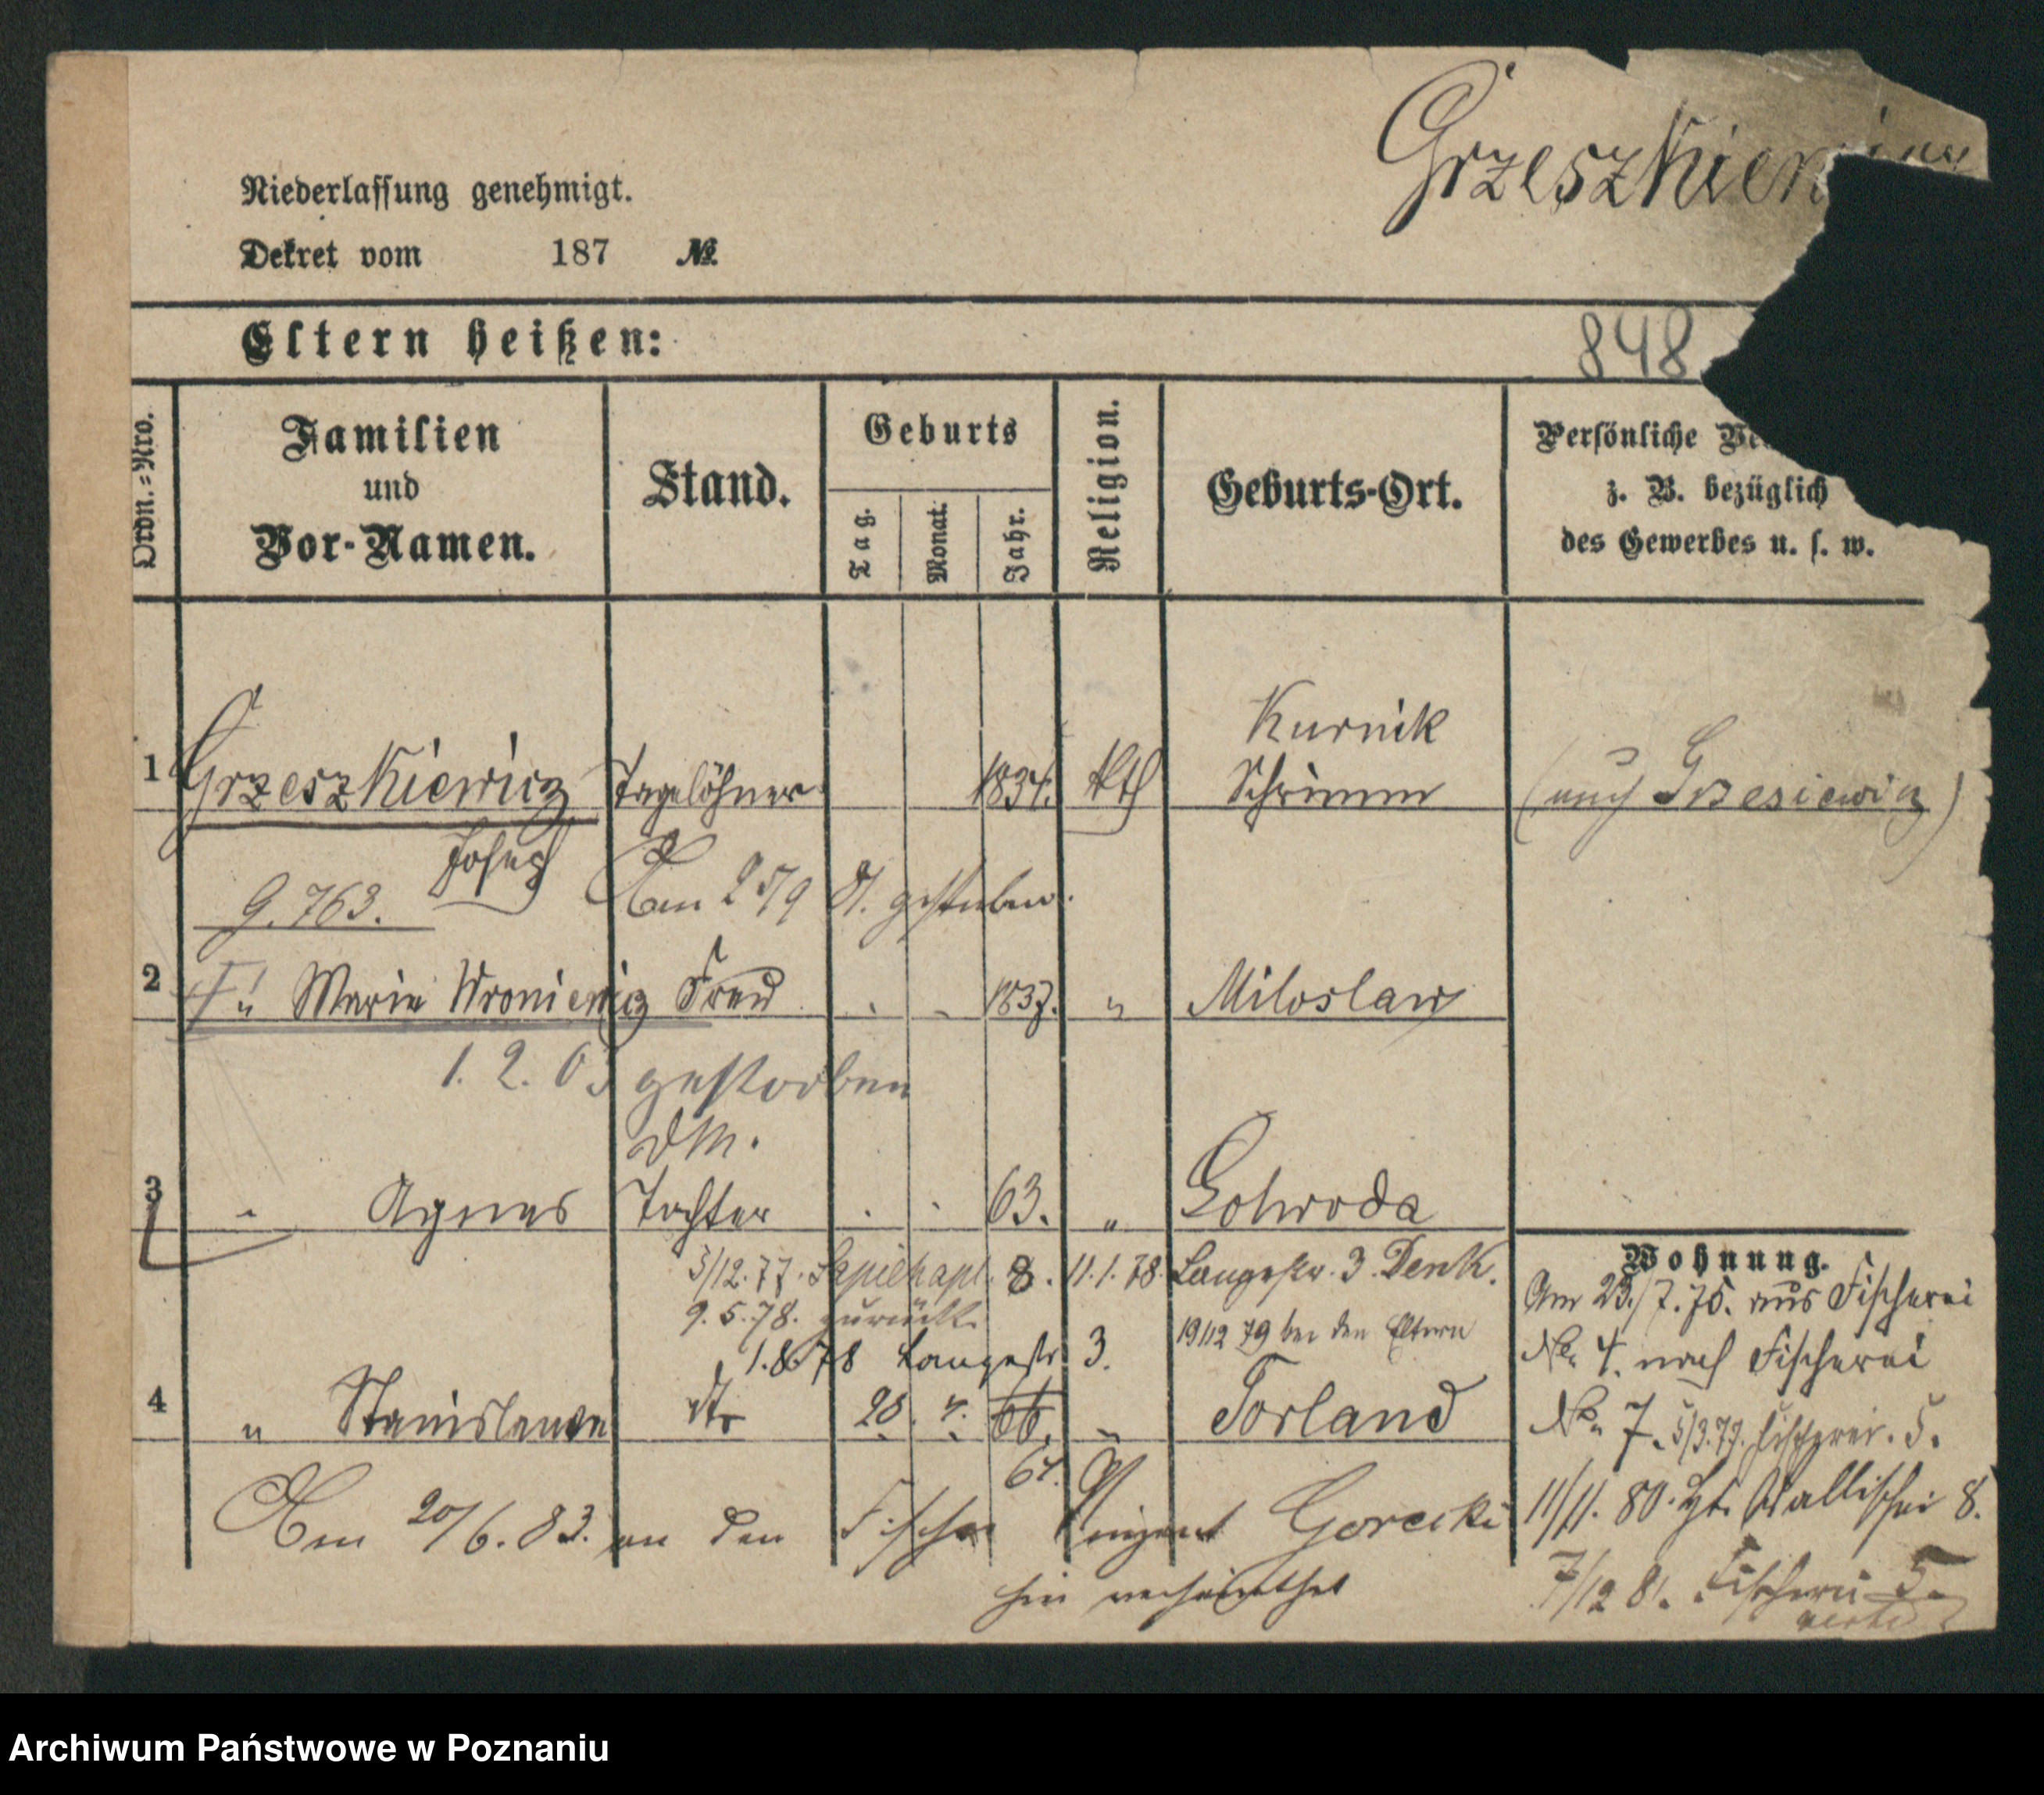 Grzeszkiewicz
Niederlassung genehmigt.
Dekret vom 187 №
Eltern heißen:
848
Ordn.-Nro.
Familien und Vor-Namen.
Stand.
Geburts
Tag.
Monat.
Jahr.
Religion.
Geburts-Ort.
Persönliche
z. B. bezüglich
des Gewerbes u. s. w.
1 Grzeszkiewicz Tagelöhner 1834. kth Kurnik Schrimm (auch Grzesiewicz)
Joseph
G. 763.
Am 25/9 81. gestorben.
2 " Marie Wroniewicz Frau 1837. " Miloslaw
1. 2. 0 gestorben
3 " Agnes Tochter 63. "
3/12. 77. Sapiehapl. 8. 11. 1. 78. Langestr. 3. Denk.
9. 5. 78. zurück.
19/12 79 bei den Eltern
1. 8. 78 Langestr 3.
4 " Stanislawa dto 28. 4. 66. " Torland
64.
Am 20/6. 83. an den Fischer Vinzent Gorecki
hier verheirathet
Wohnung.
Am 23./7. 75. aus Fischerei
No. 4. nach Fischerei
No. 7. 5/3. 79. Fischerei. 5.
11/11. 80. Wallischei 8.
7/12 81. Fischerei 5.
Archiwum Państwowe w Poznaniu